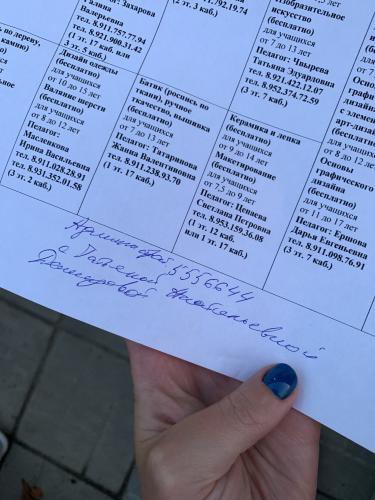 Галина
Валрьевна
тел. 8.911.757.77.94
тел. 8.921.900.31.42
(1 эт. 17 каб. или
3 эт. 5 каб.)
(2 эт. 3 каб.)
искусство
(бесплатно)
для учащихся
от 7 до 13 лет
Педагог: Чвырева
Татьяна Эдуардовна
тел. 8.921.422.12.07
тел. 8.952.374.72.59
(3 эт. 7 каб.)
Дизайн одежды
(бесплатно)
для учащихся
от 10 до 15 лет
Валяние шерсти
(бесплатно)
для учащихся
от 8 до 12 лет
Педагог:
Масленкова
Ирина Васильевна
тел. 8.911.028.28.91
тел. 8.931.352.01.58
(3 эт. 2 каб.)
Батик (роспись по
ткани), ручное
ткачество, вышивка
(бесплатно)
для учащихся
от 7 до 11 лет
Педагог: Татаринова
Жанна Валентиновна
тел. 8.911.238.93.70
(1 эт. 17 каб.)
Керамика и лепка
(бесплатно)
для учащихся
от 9 до 14 лет
Макетирование
(бесплатно)
для учащихся
от 7,5 до 9 лет
Педагог: Цепаева
Светлана Петровна
тел. 8.953.159.36.08
(1 эт. 12 каб.
или 1 эт. 17 каб.)
Основы
графического
дизайна
(бесплатно)
для учащихся
от 11 до 17 лет
Педагог: Ершова
Дарья Евгеньевна
тел. 8.911.098.76.91
(3 эт. 7 каб.)
5556644
с Татьяной Анатольевной